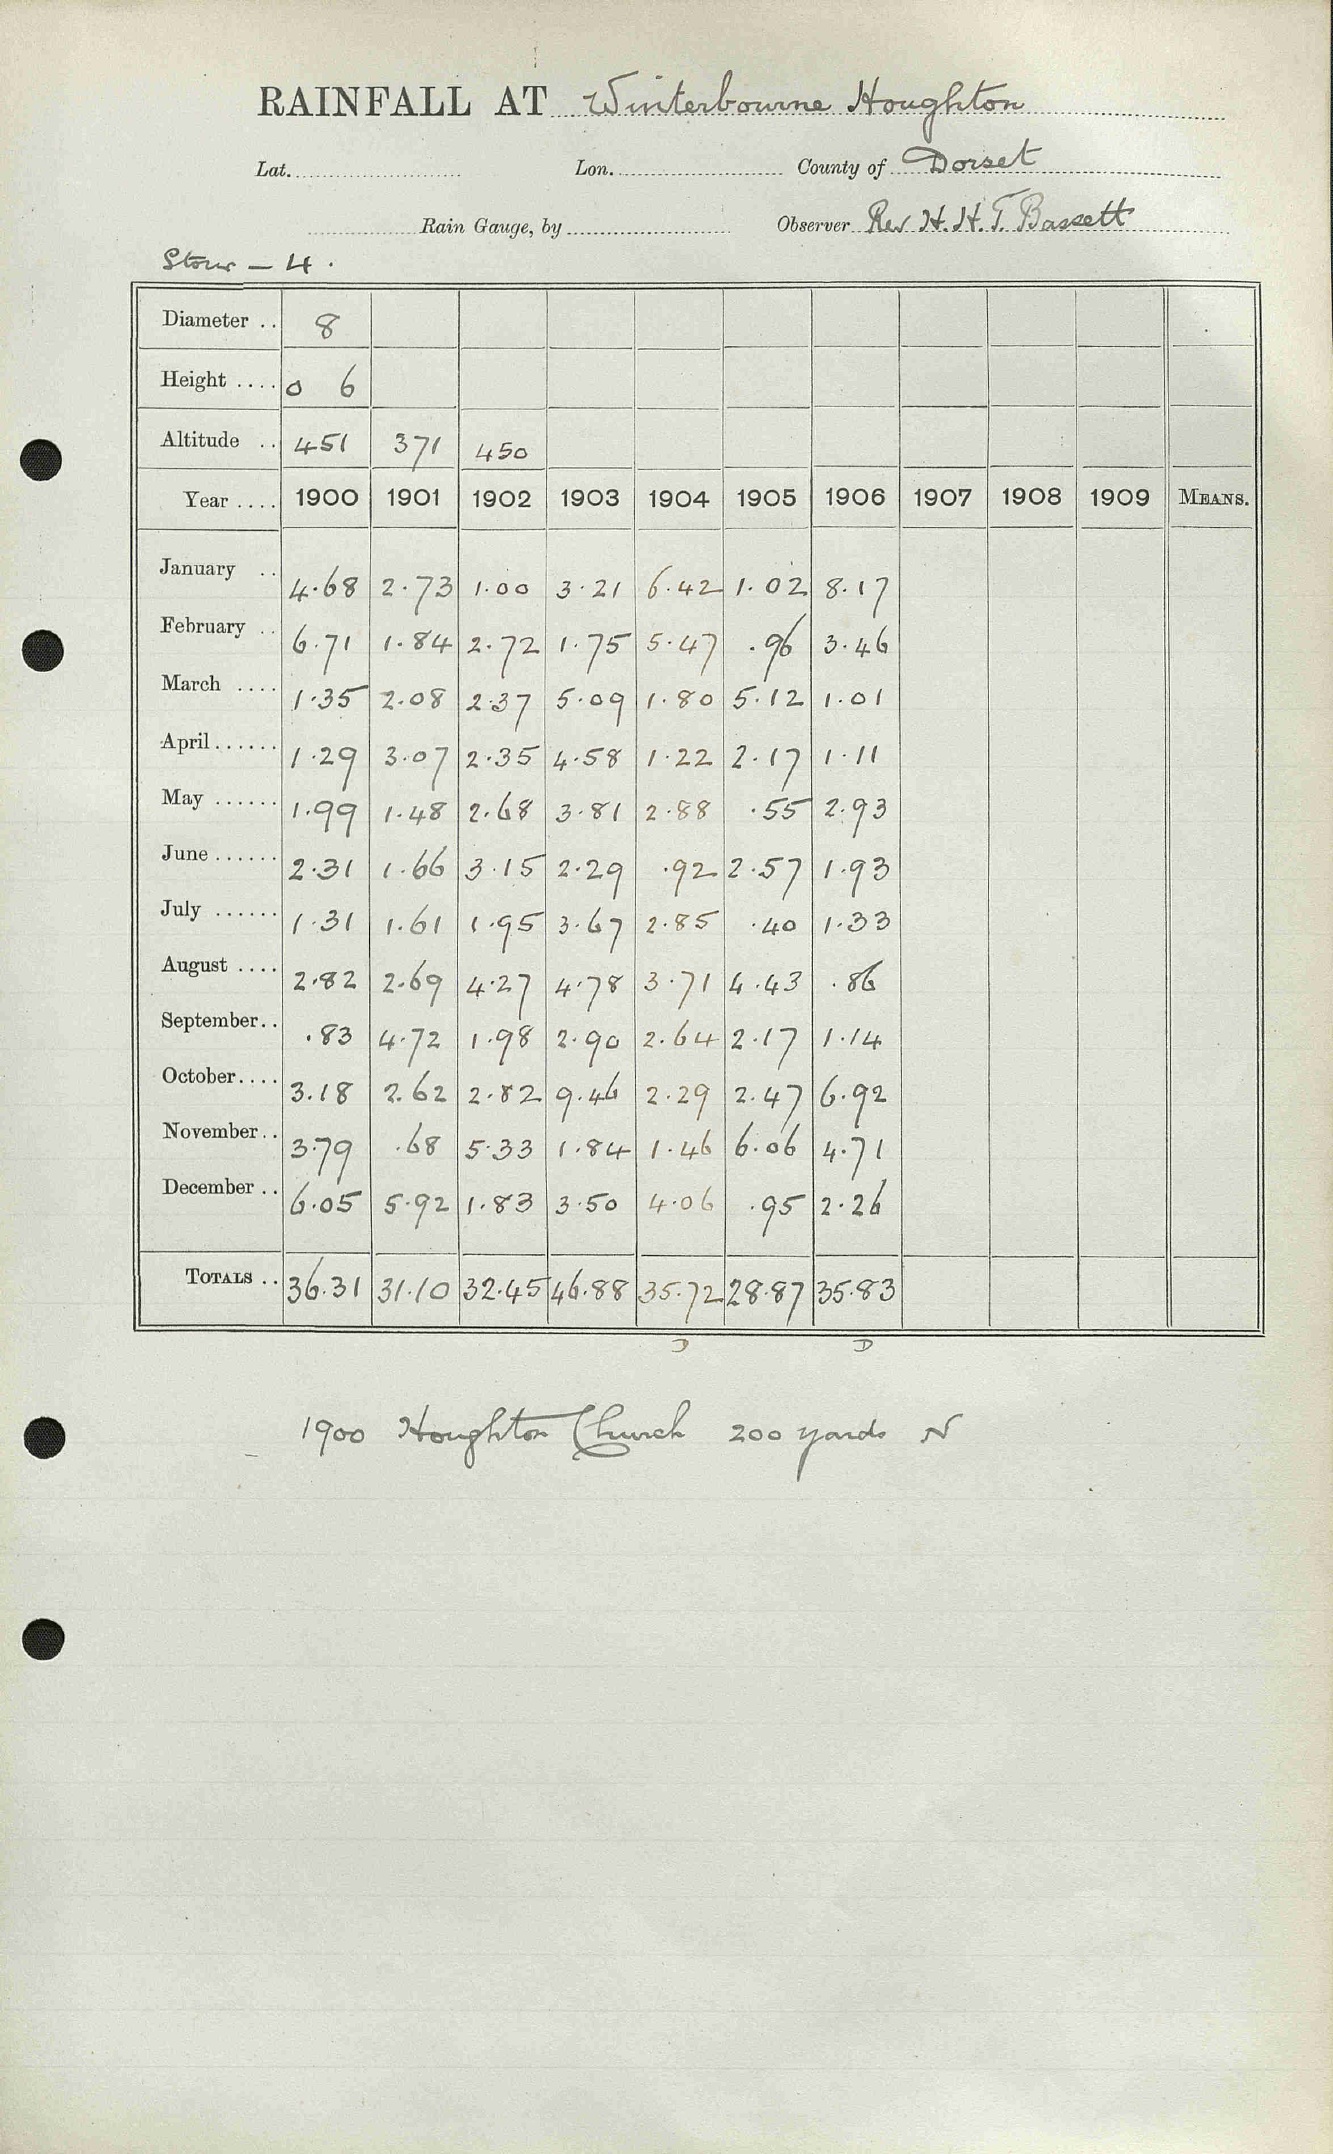 RAINFALL AT Winterbourne Houghton
Lat. Lon. County of Dorset
Rain Gauge, by Observer Rev H. H. T. Bassett
Stour - 4.
Diameter .. 8
Height .... 0 6
Altitude .. 451 371 450
Year .... 1900 1901 1902 1903 1904 1905 1906 1907 1908 1909 MEANS.
January .. 4.68 2.73 1.00 3.21 6.42 1.02 8.17
February .. 6.71 1.84 2.72 1.75 5.47 .96 3.46
March .... 1.35 2.08 2.37 5.09 1.80 5.12 1.01
April...... 1.29 3.07 2.35 4.58 1.22 2.17 1.11
May ...... 1.99 1.48 2.68 3.81 2.88 .55 2.93
June...... 2.31 1.66 3.15 2.29 .92 2.57 1.93
July ...... 1.31 1.61 1.95 3.67 2.85 .40 1.33
August .... 2.82 2.69 4.27 4.78 3.71 4.43 .86
September.. .83 4.72 1.98 2.90 2.64 2.17 1.14
October.... 3.18 2.62 2.82 9.46 2.29 2.47 6.92
November.. 3.79 .68 5.33 1.84 1.46 6.06 4.71
December .. 6.05 5.92 1.83 3.50 4.06 .95 2.26
TOTALS .. 36.31 31.10 32.45 46.88 35.72 28.87 35.83
D D
1900 Houghton Church 200 yards N